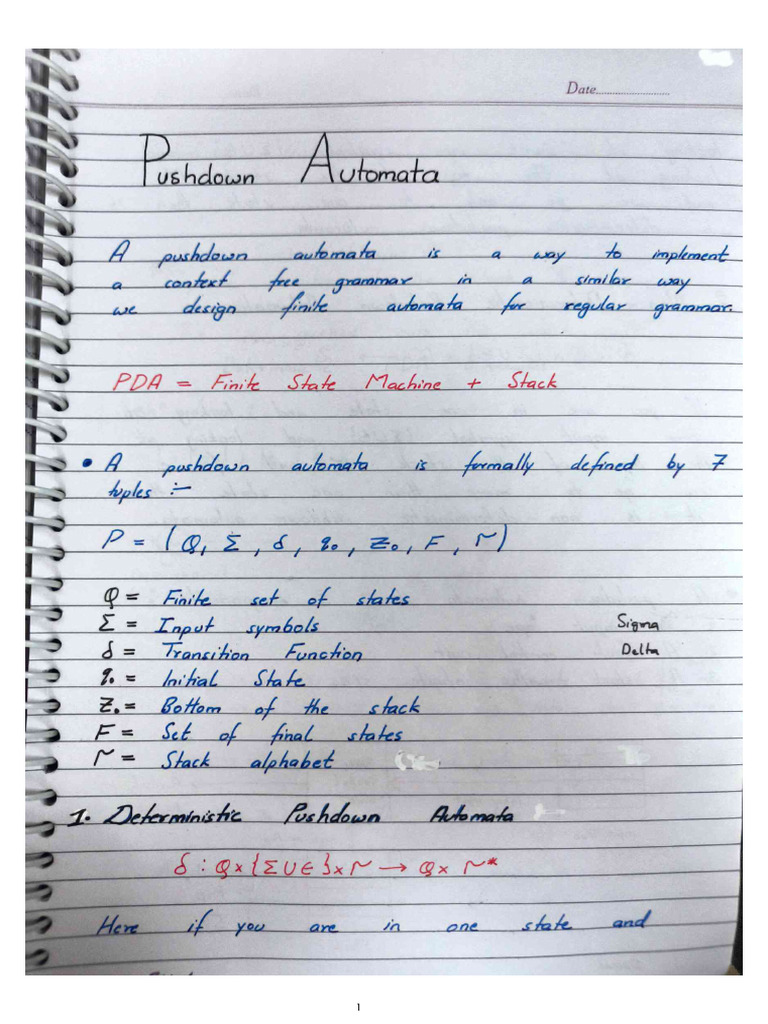 Date........................
Pushdown Automata
A pushdown automata is a way to implement
a context free grammar in a similar way
we design finite automata for regular grammar.
PDA = Finite State Machine + Stack
• A pushdown automata is formally defined by 7
tuples :-
P = (Q, Σ, δ, q₀, Z₀, F, Γ)
Q = Finite set of states
Σ = Input symbols Sigma
δ = Transition Function Delta
q₀ = Initial State
Z₀ = Bottom of the stack
F = Set of final states
Γ = Stack alphabet
1. Deterministic Pushdown Automata
δ : Q x {Σ U ∈} x Γ → Q x Γ*
Here if you are in one state and
1